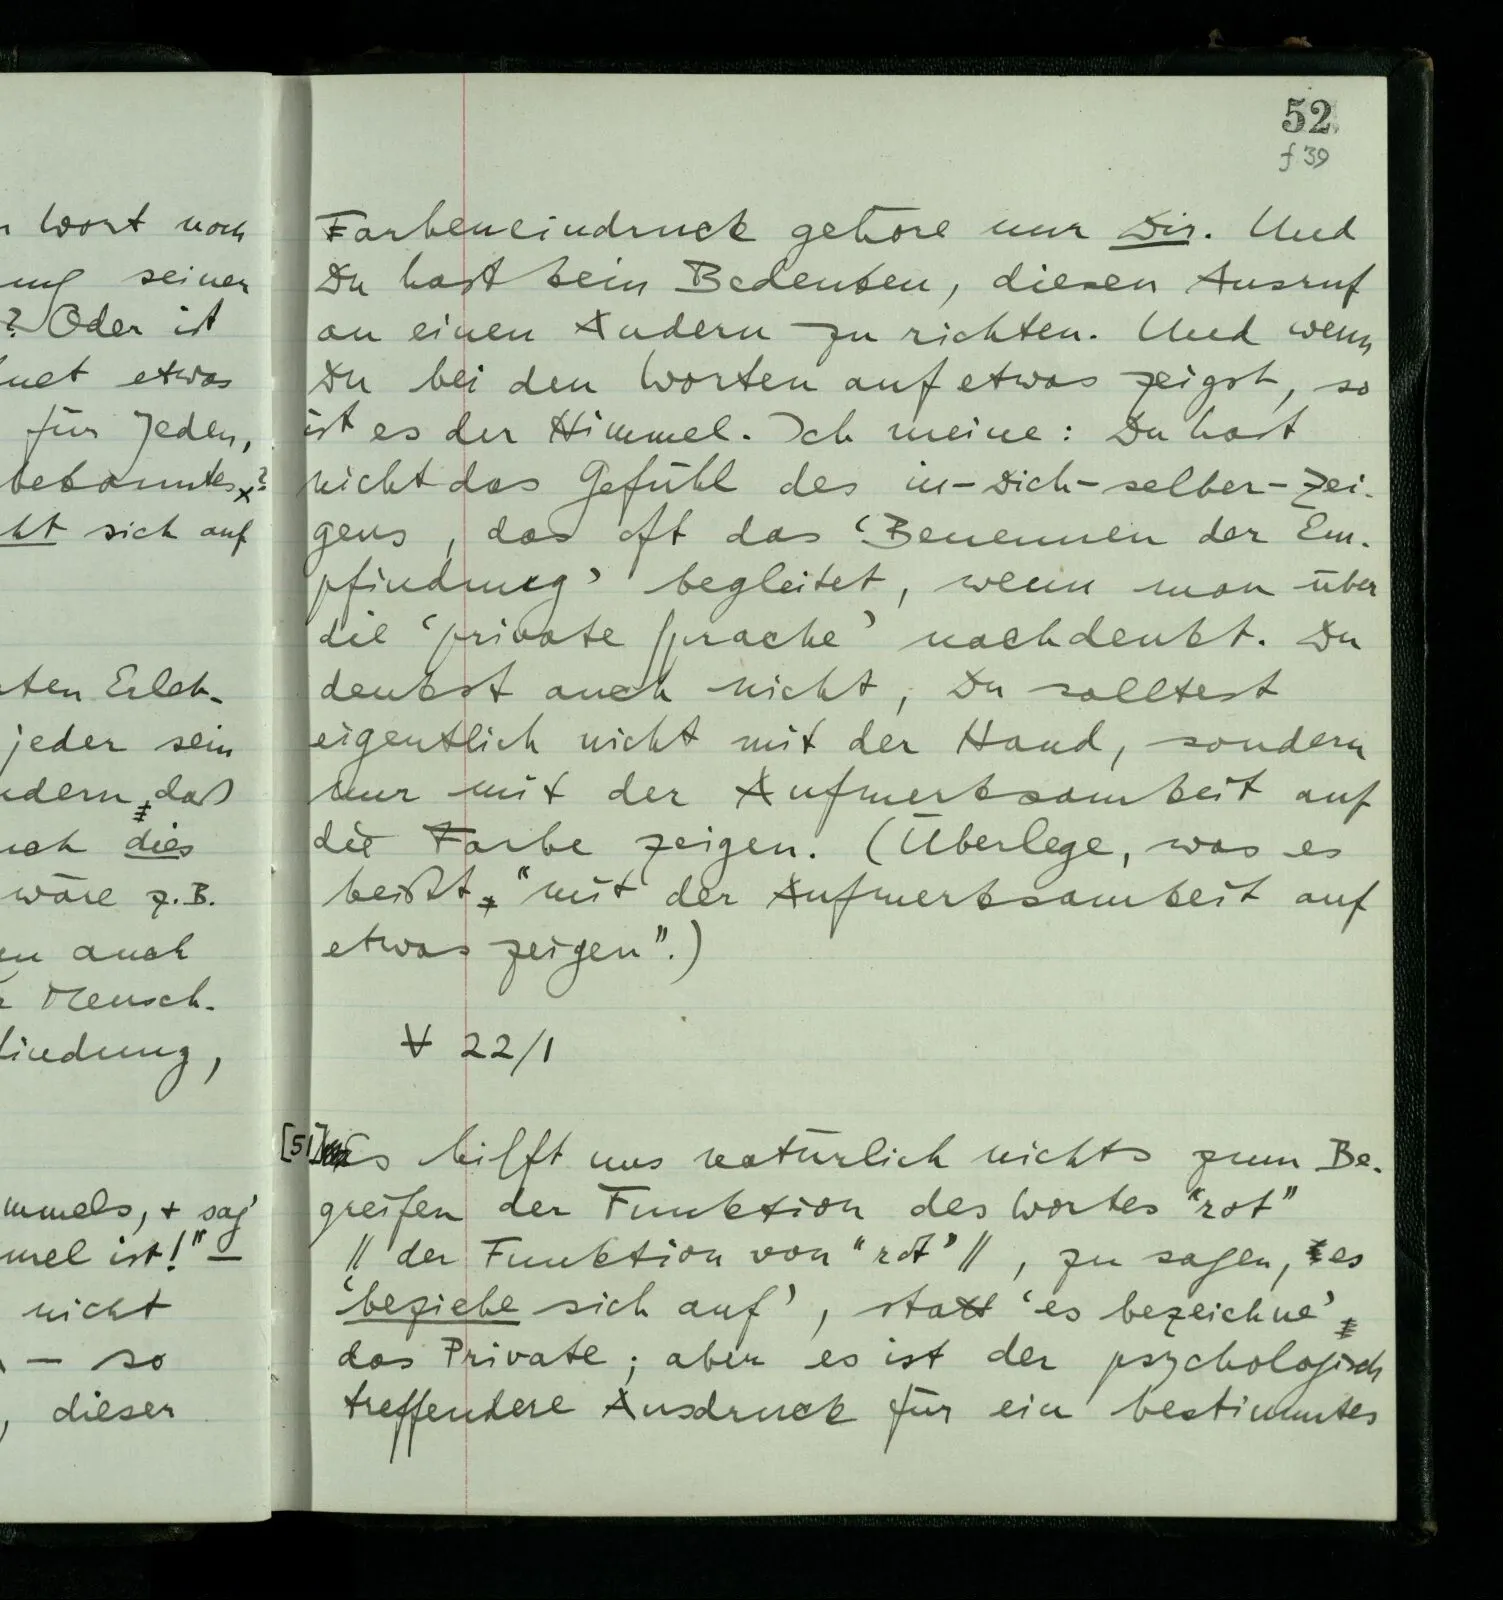 n Wort noch
ung seiner
? Oder ist
hnet etwas
für Jeden,
bekanntes?
ht sich auf
rten Erleb-
jeder sein
ndern, daß
uch dies
wäre z.B.
en auch
r Mensch-
findung,
mmels, + sag'
mel ist!" —
nicht
— so
, dieser
52
f 39
Farbeneindruck gehöre nur Dir. Und
Du hast kein Bedenken, diesen Ausruf
an einen Andern zu richten. Und wenn
Du bei den Worten auf etwas zeigst, so
ist es der Himmel. Ich meine: Du hast
nicht das Gefühl des in-Dich-selber-Zei-
gens, das oft das 'Benennen der Em-
pfindung' begleitet, wenn man über
die 'private Sprache' nachdenkt. Du
denkst auch nicht, Du solltest
eigentlich nicht mit der Hand, sondern
nur mit der Aufmerksamkeit auf
die Farbe zeigen. (Überlege, was es
heißt, "mit der Aufmerksamkeit auf
etwas zeigen".)
∀ 22/1
[51] Es hilft uns natürlich nichts zum Be-
greifen der Funktion des Wortes "rot"
|| der Funktion von "rot" ||, zu sagen, es
'beziehe sich auf', statt 'es bezeichne',
das Private; aber es ist der psychologisch
treffendere Ausdruck für ein bestimmtes